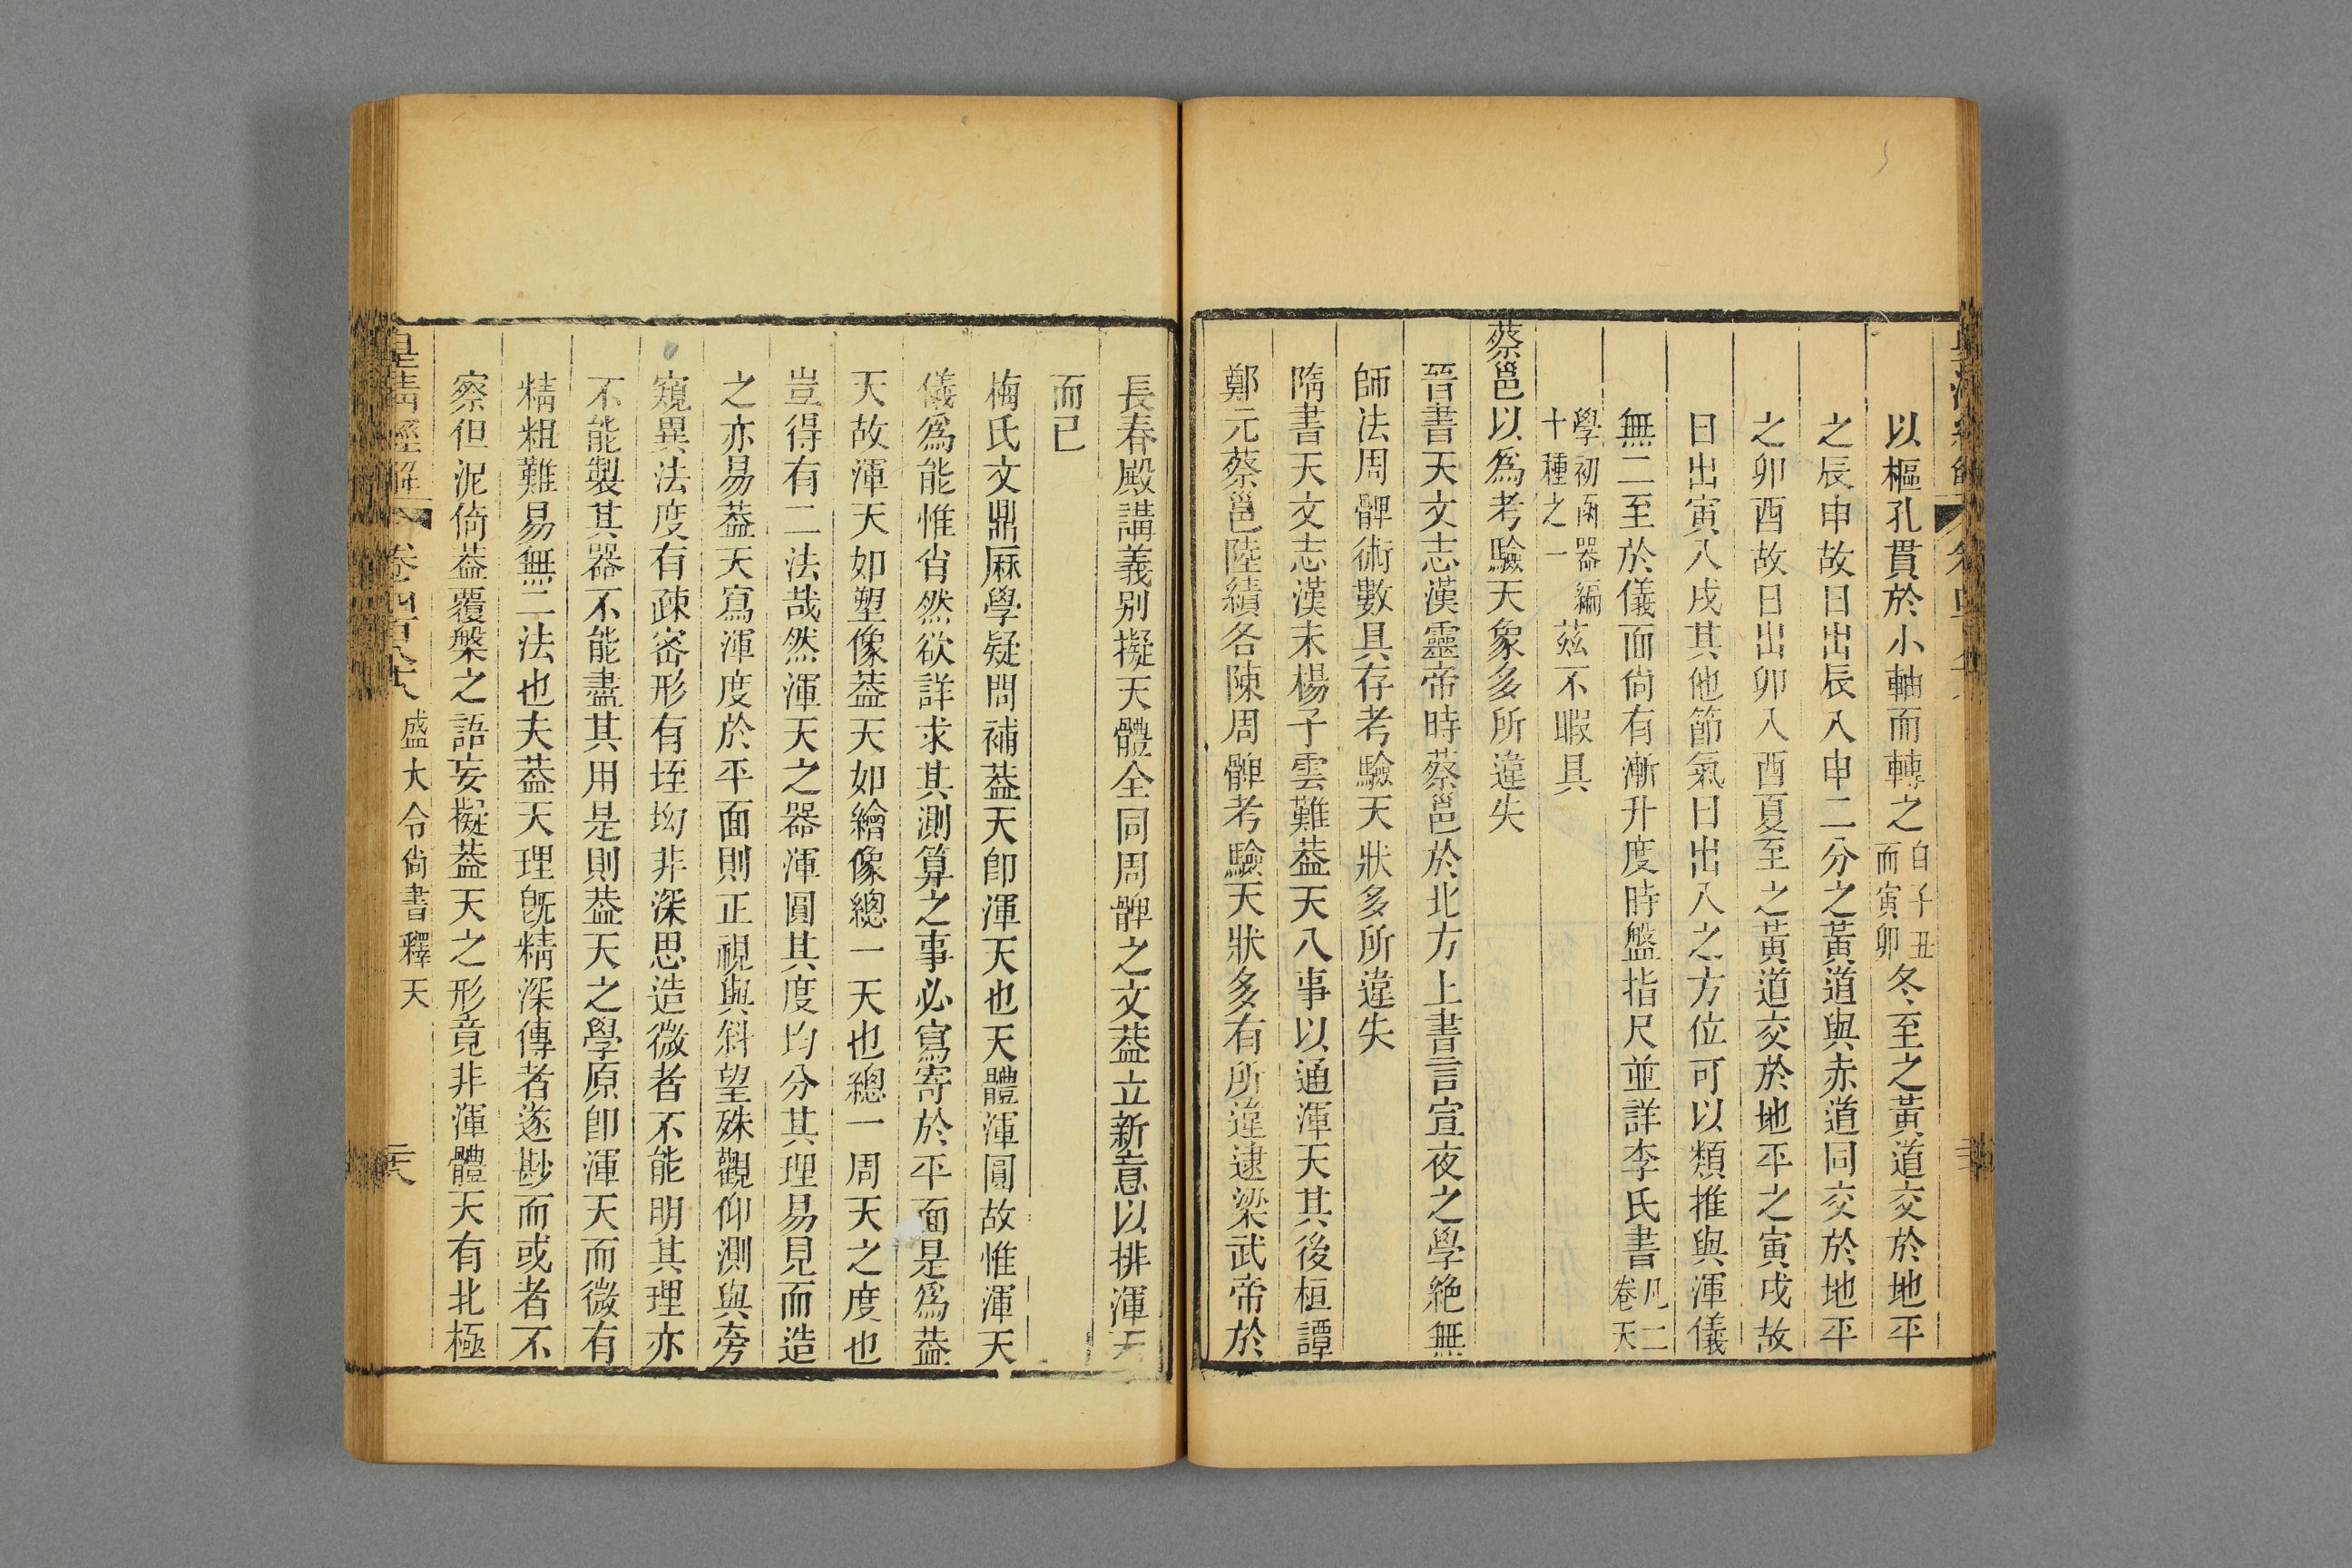 以樞孔貫於小軸而轉之自子丑而寅卯冬至之黃道交於地平
之辰申故日出辰入申二分之黃道與赤道同交於地平
之卯酉故日出卯入酉夏至之黃道交於地平之寅戌故
日出寅入戌其他節氣日出入之方位可以類推與渾儀
無二至於儀面尙有漸升度時盤指尺並詳李氏書凡二卷天
學初函器編十種之一茲不暇具
蔡邕以爲考驗天象多所違失
晉書天文志漢靈帝時蔡邕於北方上書言宣夜之學絶無
師法周髀術數具存考驗天狀多所違失
隋書天文志漢末楊子雲難葢天八事以通渾天其後桓譚
鄭元蔡邕陸績各陳周髀考驗天狀多有所違逮梁武帝於
長春殿講義别擬天體全同周髀之文葢立新意以排渾天
而已
梅氏文鼎厤學疑問補葢天卽渾天也天體渾圓故惟渾天
儀爲能惟肖然欲詳求其測算之事必寫寄於平面是爲葢
天故渾天如塑像葢天如繪像總一天也總一周天之度也
豈得有二法哉然渾天之器渾圓其度均分其理易見而造
之亦易葢天寫渾度於平面則正視與斜望殊觀仰測與旁
窺異法度有疎密形有垤坳非深思造微者不能明其理亦
不能製其器不能盡其用是則葢天之學原卽渾天而微有
精粗難易無二法也夫葢天理旣精深傳者遂尠而或者不
察但泥倚葢覆槃之語妄擬葢天之形竟非渾體天有北極
皇淸經解 卷四百八十八 盛大令尙書釋天 二六